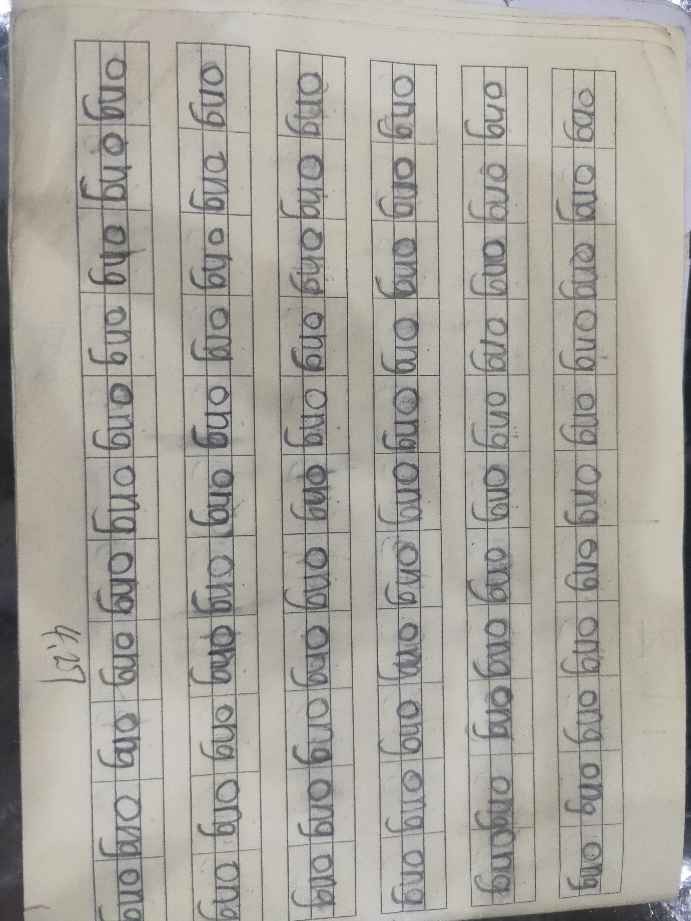 ong ong ong ong ong ong ong ong ong ong ong
ong ong ong ong ong ong ong ong ong ong ong
ong ong ong ong ong ong ong ong ong ong ong
ong ong ong ong ong ong ong ong ong ong ong
ong ong ong ong ong ong ong ong ong ong ong
ong ong ong ong ong ong ong ong ong ong ong
4.27